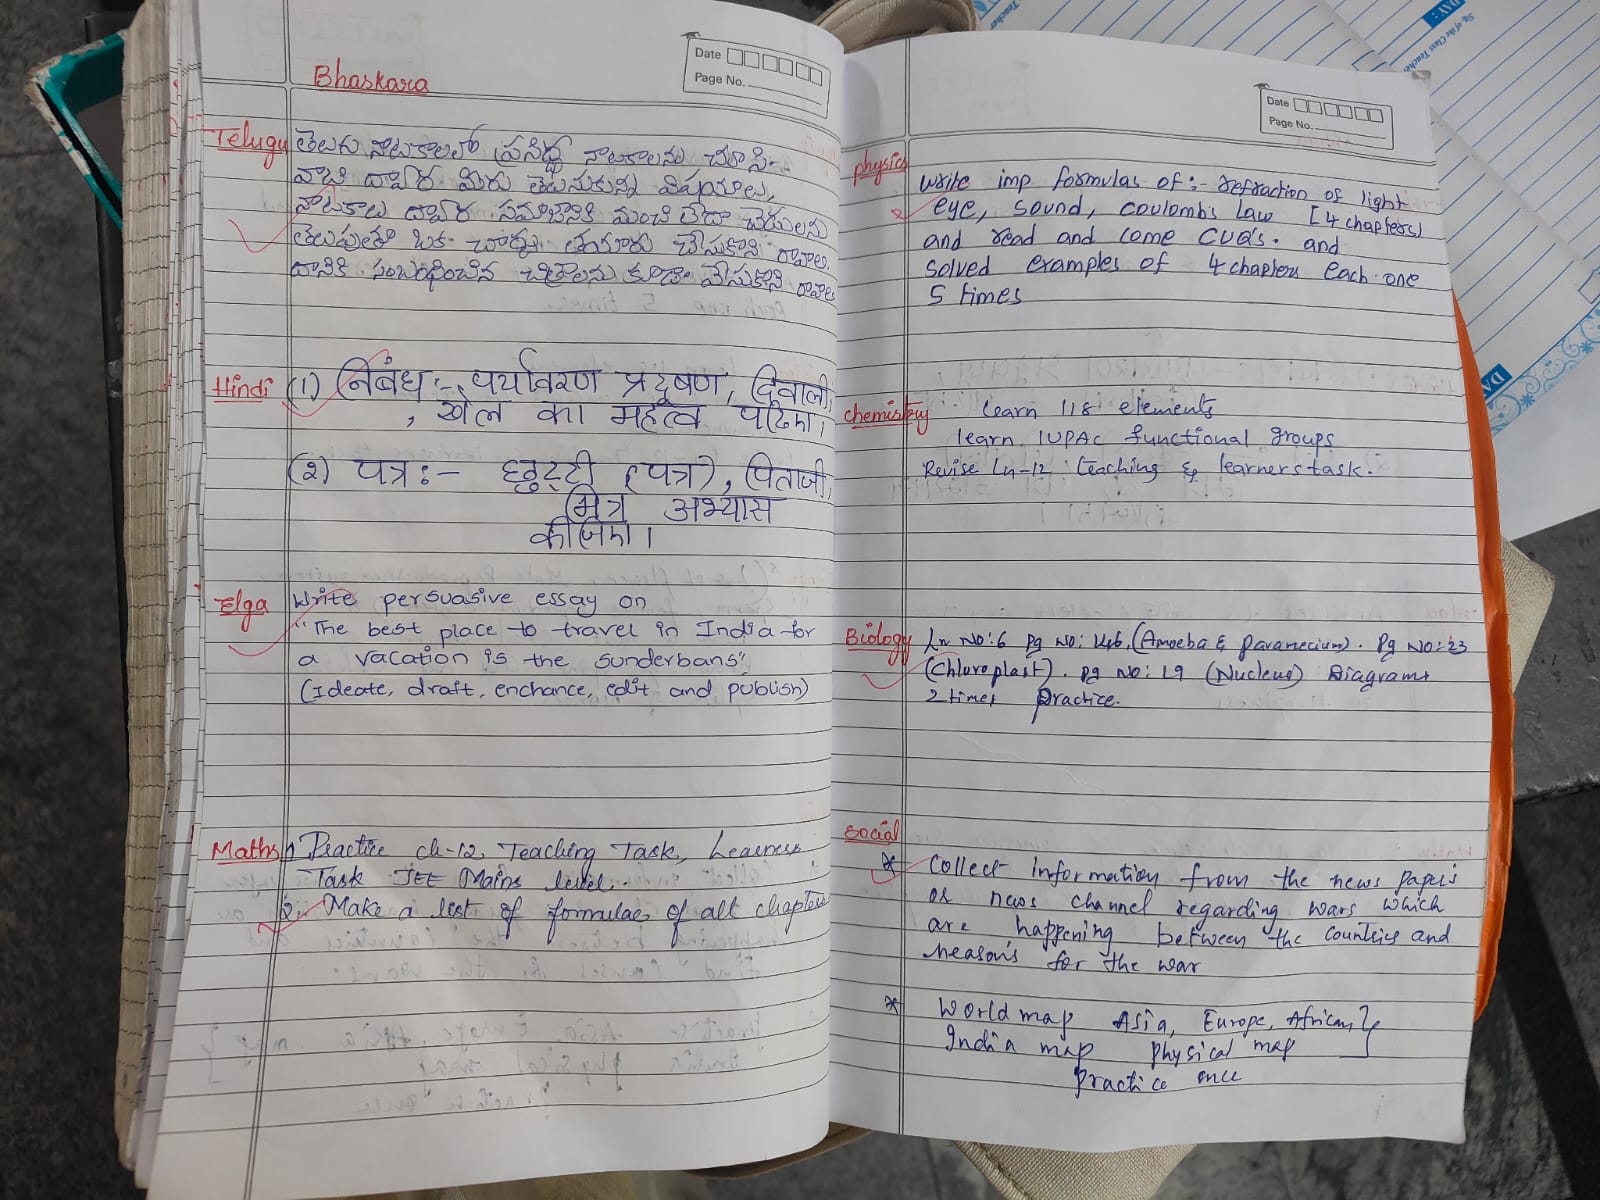 Bhaskara
Date
Page No.
Telugu తెలుగు నాటకాలలో ప్రసిద్ధ నాటకాలను చూసి-
వాటి ద్వారా మీరు తెలుసుకున్న విషయాలు,
నాటకాలు ద్వారా సమాజానికి మంచి లేదా చెడులను
తెలుపుతూ ఒక చార్టు తయారు చేసుకొని రావాలి.
దానికి సంబంధించిన చిత్రాలను కూడా వేసుకొని రావాలి
Hindi (1) निबंध:- पर्यावरण प्रदूषण, दिवाली,
, खेल का महत्व पढिए।
(२) पत्र:- छुट्टी (पत्र), पिताजी,
मित्र अभ्यास
कीजिए।
Elga Write persuasive essay on
"The best place to travel in India for
a vacation is the sunderbans"
(Ideate, draft, enchance, edit and publish)
Maths 1) Practice ch-12, Teaching Task, Learners
Task JEE Mains level.
2. Make a list of formulae of all chapters
Date
Page No.
physics
write imp formulas of:- refraction of light
eye, sound, coulombs law [4 chapters]
and read and come CUQ's. and
solved examples of 4 chapters each one
5 times
chemistry learn 118 elements
learn IUPAC functional groups
Revise Ln-12 teaching & learners task.
Biology Ln No:6 Pg No: (Amoeba & paramecium). Pg No:23
(Chloroplast). Pg No: 19 (Nucleus) Diagrams
2 times practice.
social
* collect information from the news papers
or news channel regarding wars which
are happening between the countries and
reasons for the war
* World map Asia, Europe, African }
India map physical map
practice once
Sig of the Class Teacher
DAY: